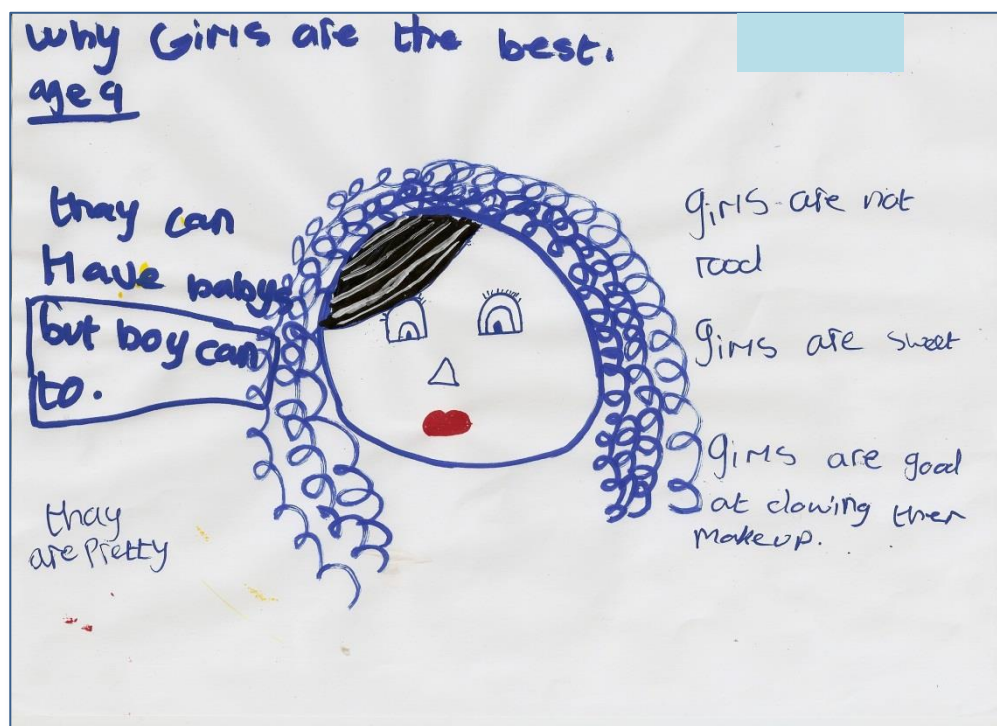 why Girls are the best.
age 9
thay can
Have babys
but boy can
to.
thay
are Pretty
girls are not
rood
girls are sweet
girls are good
at dowing ther
makeup.